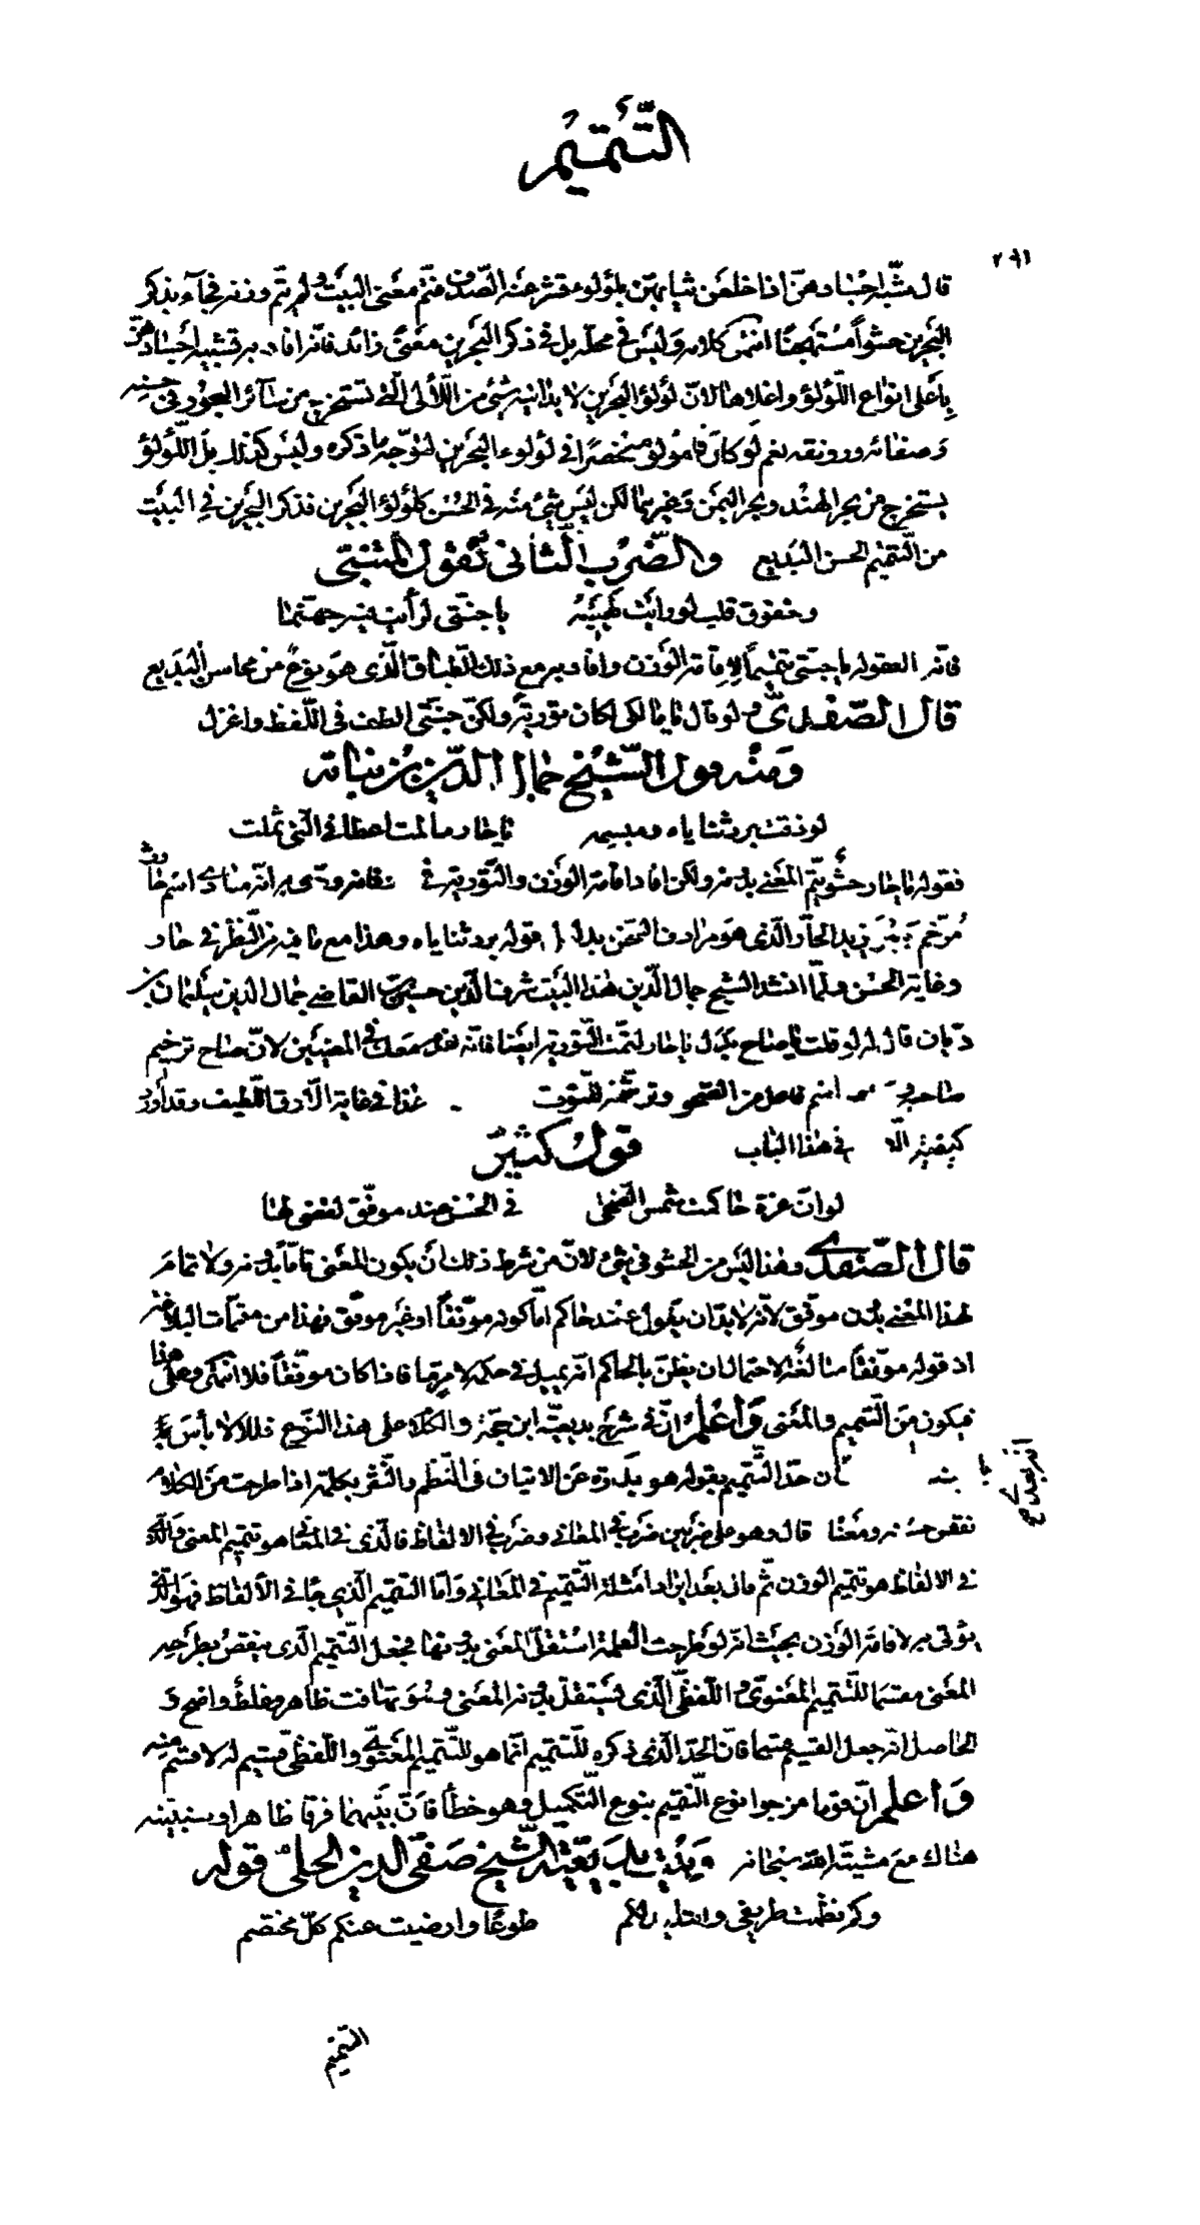 التَّتْميم
٢٩١
قال مشبّه اجسادهنّ اذا خلعن ثيابهنّ بلؤلوء قشر عنه الصّدف فتمّ معنى البيت ولم يتمّ وزنه فجآء بذكر
البحرين حشواً مستهجنا انتهى كلامه وليس في محلّه بل في ذكر البحرين معنىً زائد فانّه افاد به تشبيه اجسادهنّ
باعلى انواع اللّؤلؤ واغلاها لانّ لؤلؤ البحرين لا يدانيه شئ من اللّآلى الّتى تستخرج من سآئر البحور في حسنه
وصفائه ورونقه نعم لو كان اللؤلؤ منحصرًا في لؤلوء البحرين لتوجّه ما ذكره وليس كذلك بل اللّؤلؤ
يستخرج من بحر الهند وبحر اليمن وغيرهما لكن ليس شئ منه في الحسن كلؤلؤ البحرين فذكر البحرين في البيت
من التّتميم الحسن البديع والضّرب الثّانى كقول المتنبّى
وخفوق قلب لو رأيت لهيبه يا جنّتى لرأيت فيه جهنّما
فانّه العقوله يا جنّتى تتميماً لاقامة الوزن وافاد به مع ذلك الطّباق الّذى هو نوعٌ من محاسن البديع
قال الصّفدىّ ولو قال يا مالكى لكان تورية ولكنّ جنّتى الطف في اللّفظ واغزل
ومنه قول الشّيخ جمال الدّين بن نباته
لو ذقت برد ثناياه ومبسمه يا حار ما لمت اعطافى الّتى ثملت
فقوله يا حار حشو يتمّ المعنى بدونه ولكن افاد اقامة الوزن والتّورية في وهى انّه منادى اسم حارث
مُرخّم وبين يد الحارّ الّذى هو مرادف السخن بدليل قوله برد ثناياه وهذا مع ما فيه من النّظر في حار
وغاية الحسن ولمّا انشد الشيخ جمال الدّين هذا البيت شرف الدّين حسين بن القاضى جمال الدين سليمان بن
ريّان قال له لو قلت يا صاح بدل يا حار لتمّت التّورية ايضا فانّه في المعنيين لانّ صاح ترخيم
صاحب اسم فاعل من الصّحو وترشّحه للتورية غذا في غاية الذوق اللّطيف وقد اورد
كبصبه الّا في هذا الباب قول كثيّر
لو انّ عزة حاكمت شمس الضّحى في الحسن عند موفّق لقضى لها
قال الصّفدى وهذا ليس من الحشو في شئ لانّ من شرط ذلك ان يكون المعنى تامّاً بدونه ولا تمام
لهذا المعنى بدون موفّق لانّه لا بدّ ان يقول عند حاكم امّا كونه موفّقاً او غير موفّق فهذا من متمّمات البلاغة
اذ قوله موفّقاً مبالغة لاحتمال ان يظنّ بالحاكم انّه يميل في حكمه لامرٍ ما فاذا كان موفّقاً فلا انتهى وعلى هذا
فيكون من التّتميم والمعنى واعلم انّ في شرح بديعيّة ابن حجّة والكلام على هذا النّوع خللاً لا بأس
ان حدّ التّتميم بقوله هو بلدة عن الاتيان في النّظم والنّثر بكلمة اذا طرحت من الكلام
نقص حسنه ومعناه قال وهو على ضربين ضرب في المعانى وضرب في الالفاظ فالّذى في المعانى هو تتميم المعنى والّذى
في الالفاظ هو تتميم الوزن ثمّ قال بعد ايراد امثلة التّتميم في المعانى وامّا التّتميم الّذي جآء في الالفاظ فهو الّذى
يؤتى به لاقامة الوزن بحيث انّه لو طرحت الكلمة استقلّ المعنى بدونها فجعل التّتميم الّذى ينقص بطرحه
المعنى مقسما للتّتميم المعنوىّ واللّفظىّ الّذى يستقلّ بدونه المعنى وهو تهافت ظاهر وغلط واضح و
الحاصل انّه جعل القسيم مقسما فانّ الحدّ الّذى ذكره للتّتميم انّما هو للتّتميم المعنوىّ واللّفظىّ قسيم له لا قسم منه
واعلم انّ قوما مزجوا نوع التّتميم بنوع التّكميل وهو خطأ فانّ بينهما فرقا ظاهرا وسنبيّنه
هناك مع مشيّة الله سبحانه وبيت بديعيّة الشّيخ صفىّ الدين الحلّىّ قوله
وكم بذلت طريفى والتليد لكم طوعًا وارضيت عنكم كلّ مختصم
التّتميم